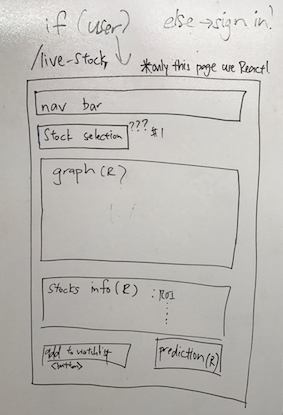 if (user) else → sign in!
/live-stock
*only this page use React!
nav bar
Stock selection ??? #1
graph (R)
Stocks info (R) : ROI
add to watchlist
<button>
prediction (R)